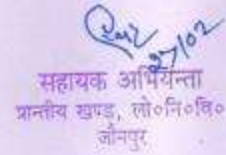 27/02
सहायक अभियन्ता
प्रान्तीय खण्ड, लो०नि०वि०
जौनपुर